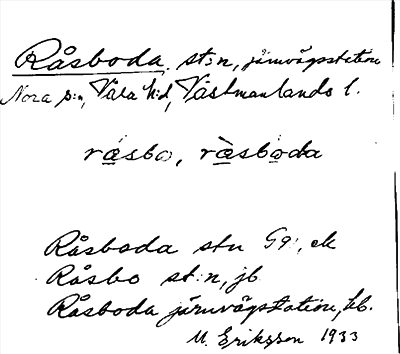 Råsboda, st:n, järnvägsstation
Nora s:n, Våla h:d, Västmanlands l.
ræsbo, ræsboda
Råsboda stn G9, ek
Råsbo st:n, jb.
Råsboda järnvägstation, hb.
M. Eriksson 1933